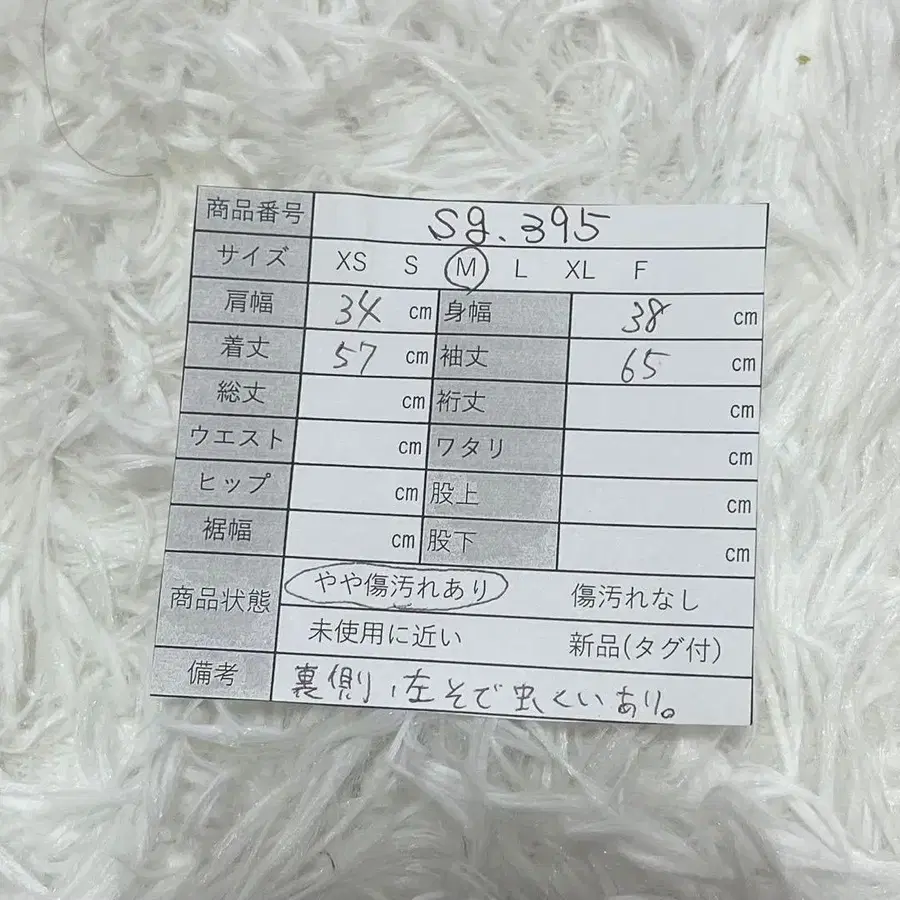 商品番号 sg.395
サイズ XS S M L XL F
肩幅 34 cm 身幅 38 cm
着丈 57 cm 袖丈 65 cm
総丈 cm 裄丈 cm
ウエスト cm ワタリ cm
ヒップ cm 股上 cm
裾幅 cm 股下 cm
商品状態 やや傷汚れあり 傷汚れなし
未使用に近い 新品(タグ付)
備考 裏側、左そで虫くいあり。